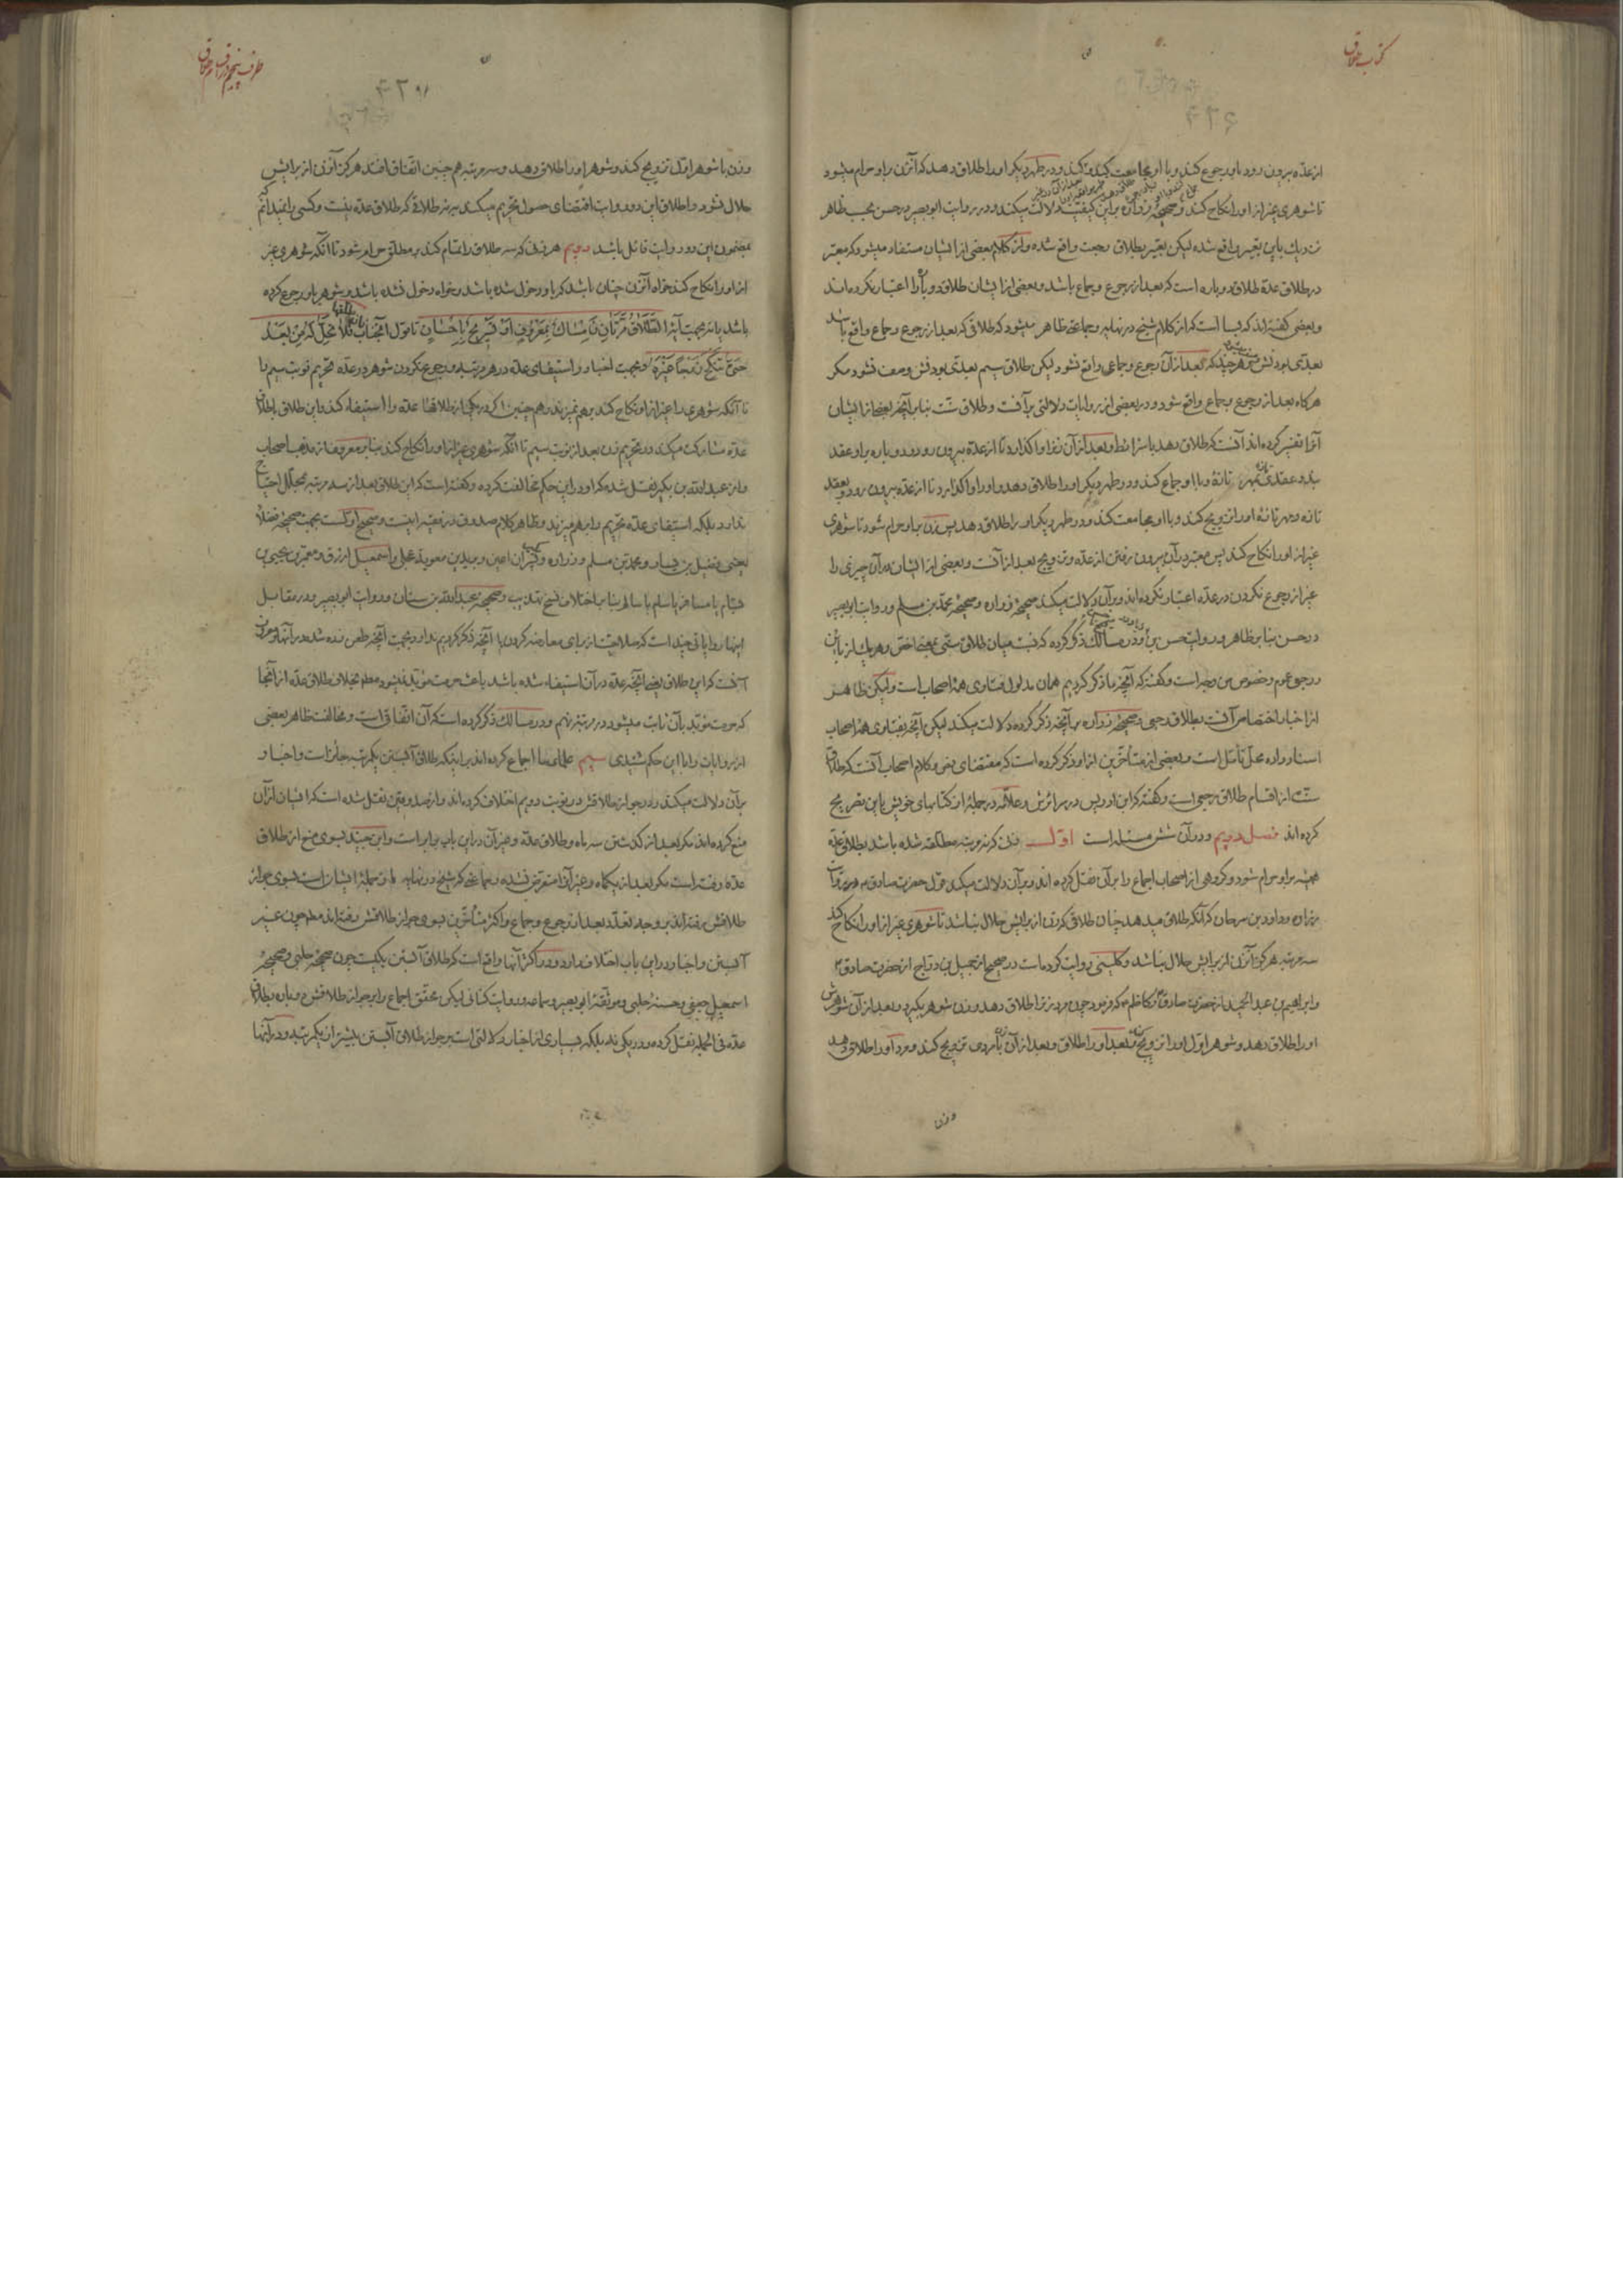 کتاب طلاق
از عدّه بیرون رود باو رجوع کند و با او مجامعت کند و در طهر دیگر او را طلاق دهد که آنزن براو حرام میشود
تا شوهری غیر از او را نکاح کند و صحیحهٔ زراره براین کیفیت دلالت میکند و در روایت ابوبصیر در حسن بحسب ظاهر
نزدیک باین تعبیر واقع شده لیکن تعبیر بطلاق رجعت واقع شده و از کلام بعضی از ایشان مستفاد میشود که معتبر
در طلاق عدّة طلاق دوباره است که بعد از رجوع و جماع باشد و بعضی از ایشان طلاق دوباره را اعتبار نکرده‌اند
و بعضی گفته‌اند که بسا است که از کلام شیخ در نهایه و جماعتی ظاهر میشود که طلاقی که بعد از رجوع و جماع واقع باشد
بعدّی بودنش هر چند که بعد از آن رجوع و جماعی واقع نشود لیکن طلاق سیم بعدّی بودنش وصف نشود مگر
هرکاه بعد از رجوع و جماع واقع شود و در بعضی از روایات دلالتی برآنست و طلاق سنّت بنا برآنچه بعضی از ایشان
آنرا تفسیر کرده‌اند آنست که طلاق دهد با شرائط و بعد از آن زنرا واکذارد تا از عدّه بیرون رود و دوباره براو عقد
بندد عقدی تازه و با او جماع کند و در طهر دیگر او را طلاق دهد و او را واکذارد تا از عدّه بیرون رود و بعقد
تازه و مهر تازه او را تزویج کند و با او مجامعت کند و در طهر دیگر او را طلاق دهد پس زن براو حرام شود تا شوهری
غیر از او را نکاح کند پس معتبر در آن بیرون رفتن از عدّه و تزویج بعد از آنست و بعضی از ایشان در آن چیزی را
غیر از رجوع نکردن در عدّه اعتبار نکرده‌اند و برآن دلالت میکند صحیحهٔ زراره و صحیحهٔ محمّد بن مسلم و روایت ابوبصیر
در حسن بنا بر ظاهر و روایت حسن بن زیاد و در مسالک ذکر کرده که نسبت میان طلاق سنّی بمعنی اخصّ و هریک از باین
و رجعی عموم و خصوص من وجه است و گفته که آنچه ما ذکر کردیم همان مدلول فتاوی همهٔ اصحاب است ولیکن ظاهر
از اخبار اختصاص آنست بطلاق رجعی و صحیحهٔ زراره برآنچه ذکر کرده دلالت میکند لیکن آنچه بفتاوی همهٔ اصحاب
اسناد داده محلّ تأمّل است و بعضی از متأخّرین از او ذکر کرده است که مقتضای نص و کلام اصحاب آنست که طلاق
سنّت از اقسام طلاق رجعی است و گفته که ابن ادریس در سرائرش و علّامه در جملهٔ از کتابهای خویش باین تصریح
کرده‌اند فصل دویم و در آن شش مسئله است اوّل زنی که نه مرتبه مطلّقه شده باشد بطلاق عدّة
همیشه براو حرام شود و گروهی از اصحاب اجماع را برآن نقل کرده‌اند و برآن دلالت میکند قول حضرت صادق ع در روایت
زراره و داود بن سرحان که آنکه طلاق میدهد چنان طلاقی که زن از برایش حلال نباشد تا شوهری غیر از او را نکاح کند
سه مرتبه هرکز آنزن از برایش حلال نباشد و کلینی روایت کرده است در صحیح از جمیل بن درّاج از حضرت صادق ع
و ابراهیم بن عبد الحمید از حضرت صادق ع یا کاظم ع که فرمود چون مرد زنرا طلاق دهد و زن شوهر بگیرد و بعد از آن شوهرش
او را طلاق دهد و شوهر اوّل او را تزویج کند و بعد او را طلاق و بعد از آن با مردی تزویج کند و مرد او را طلاق دهد
وزن
۴۲۹۸
وزن با شوهر اوّل تزویج کند و شوهر او را طلاق دهد و سه مرتبه همچنین اتّفاق افتد هرکز آنزن از برایش
حلال نشود و اطلاق این دو روایت اقتضای حصول تحریم میکند بنه طلاقی که طلاق عدّه نیست و کسی را نمیدانم که
بمضمون این دو روایت قائل باشد دویم هر زنی که سه طلاق را تمام کند بر مطلّق حرام شود تا آنکه شوهری غیر
از او را نکاح کند خواه آنزن چنان باشد که باو دخول شده باشد و خواه دخول نشده باشد و شوهر باو رجوع کرده
باشد یا نه بجهت آیهٔ الطَّلَاقُ مَرَّتَانِ فَاِمْسَاكٌ بِمَعْرُوفٍ اَوْ تَسْرِیحٌ بِاِحْسَانٍ تا قول آنجناب فَلَا تَحِلُّ لَهُ مِنْ بَعْدُ
حَتّٰی تَنْکِحَ زَوْجًا غَیْرَهُ و بجهت اخبار و استیفای عدّه در هر مرتبه و رجوع نکردن شوهر در عدّه تحریم نوبت سیم را
تا آنکه شوهری را غیر از او نکاح کند برهم نمیزند
عدّه مشارکت میکند در تحریم زن بعد از نوبت سیم تا آنکه شوهری غیر از او را نکاح کند بنا بر معروف از مذهب اصحاب
و از عبد اللّه بن بکیر نقل شده که او در این حکم مخالفت کرده و گفته است که این طلاق بعد از سه مرتبه بمحلّل احتیاج
ندارد بلکه استیفای عدّه تحریم را برهم میزند و ظاهر کلام صدوق در فقیه اینست و صحیح اوّلست بجهت صحیحهٔ فضلاء
یعنی فضیل بن یسار و محمّد بن مسلم و زراره و بکیر پسران اعین و برید بن معویه عجلی و اسمعیل ازرق و معمّر بن یحیی بن
بسّام یا مسافر یا سلم یا سالم بنا بر اختلاف نسخ تهذیب و صحیحهٔ عبد اللّه بن سنان و روایت ابوبصیر و در مقابل
اینها روایاتی چند است که صلاحیّت از برای معارضه کردن با آنچه ذکر کردیم ندارد بجهت آنچه طعن زده شده در آنها و معروف
آنست که این طلاق یعنی آنچه عدّه در آن استیفاء شده باشد باعث حرمت مؤبّد نمیشود مطلقا بخلاف طلاق عدّه از آنجا
که حرمت مؤبّد بآن ثابت میشود در مرتبهٔ نهم و در مسالک ذکر کرده است که آن اتّفاقی است و مخالفت ظاهر بعضی
از روایات را با این حکم شنیدی سیم علمای ما اجماع کرده‌اند براینکه طلاق آبستن یکمرتبه جائز است و اخبار
برآن دلالت میکند و در جواز طلاقش در نوبت دویم اختلاف کرده‌اند و از صدوقین نقل شده است که ایشان از آن
منع کرده‌اند مکر بعد از گذشتن سه ماه و طلاق عدّة و غیر آن در این باب برابر است و ابن جنید بسوی منع از طلاق
عدّه رفته است مکر بعد از یکماه و غیر آنرا متعرّض نشده و جماعتی که شیخ در نهایه از جملهٔ ایشان است بسوی جواز
طلاقش رفته‌اند بر وجه تعدّد بعد از رجوع و جماع و اکثر متأخّرین بسوی جواز طلاقش رفته‌اند مطلقا چون غیر
آبستن و اخبار در این باب اختلاف دارد و در اکثر آنها واقع است که طلاق آبستن یکیست چون صحیحهٔ حلبی و صحیحهٔ
اسمعیل جعفی و حسنهٔ حلبی و موثّقهٔ ابوبصیر و سماعه و روایت کنانی لیکن محقّق اجماع را بر جواز طلاقش دوباره بطلاق
عدّه فی الجمله نقل کرده و در یکی نه بلکه بسیاری از اخبار دلالتی است بر جواز طلاق آبستن بیشتر از یکمرتبه و در آنها